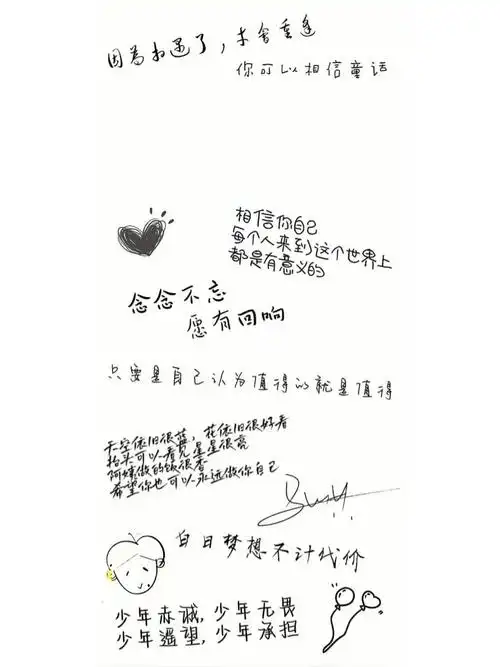 因为相遇了，才会重逢
你可以相信童话
相信你自己
每个人来到这个世界上
都是有意义的
念念不忘
愿有回响
只要是自己认为值得的就是值得
天空依旧很蓝，花依旧很好看
抬头可以看见星星很亮
阿姨做的饭很香
希望你也可以永远做你自己
白日梦想不计代价
少年赤诚，少年无畏
少年遥望，少年承担